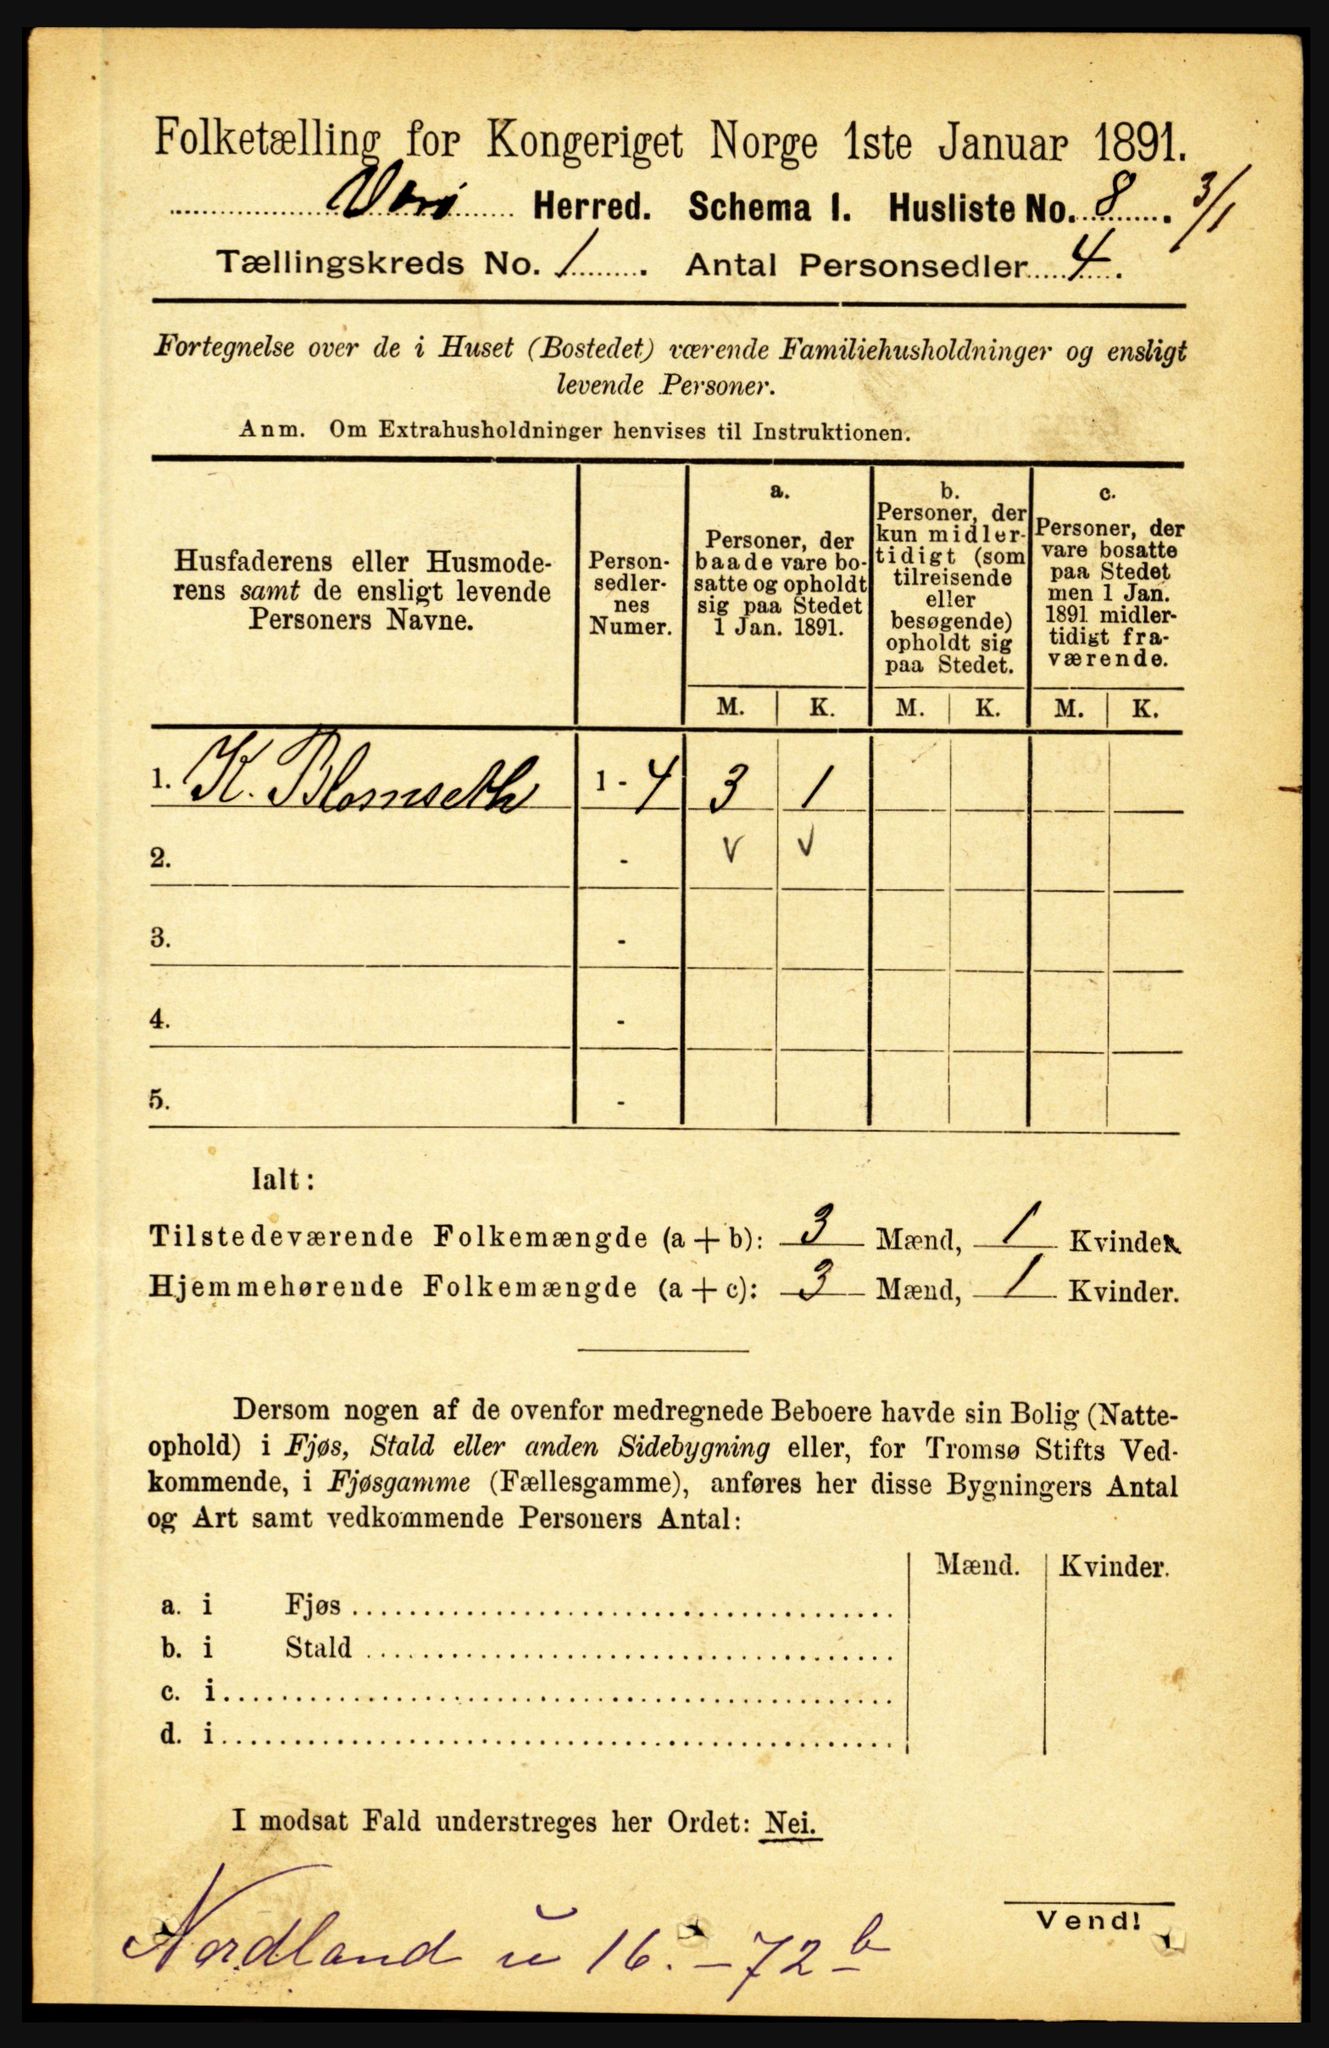 Folketælling for Kongeriget Norge 1ste Januar 1891.
Værø Herred. Schema I. Husliste No. 8. 3/1
Tællingskreds No. 1. Antal Personsedler 4.
Fortegnelse over de i Huset (Bostedet) værende Familiehusholdninger og ensligt
levende Personer.
Anm. Om Extrahusholdninger henvises til Instruktionen.
Husfaderens eller Husmode-
rens samt de ensligt levende
Personers Navne.
Person-
sedler-
nes
Numer.
a.
Personer, der
baade vare bo-
satte og opholdt
sig paa Stedet
1 Jan. 1891.
b.
Personer, der
kun midler-
tidigt (som
tilreisende
eller
besøgende)
opholdt sig
paa Stedet.
c.
Personer, der
vare bosatte
paa Stedet
men 1 Jan.
1891 midler-
tidigt fra-
værende.
M. K. M. K. M. K.
1. K. Blomseth 1 - 4 3 1
2. - v v
3. -
4. -
5. -
Ialt:
Tilstedeværende Folkemængde (a + b): 3 Mænd, 1 Kvinder.
Hjemmehørende Folkemængde (a + c): 3 Mænd, 1 Kvinder.
Dersom nogen af de ovenfor medregnede Beboere havde sin Bolig (Natte-
ophold) i Fjøs, Stald eller anden Sidebygning eller, for Tromsø Stifts Ved-
kommende, i Fjøsgamme (Fællesgamme), anføres her disse Bygningers Antal
og Art samt vedkommende Personers Antal:
Mænd. Kvinder.
a. i Fjøs
b. i Stald
c. i
d. i
I modsat Fald understreges her Ordet: Nei.
Vend!
Nordland u 16. - 72 b